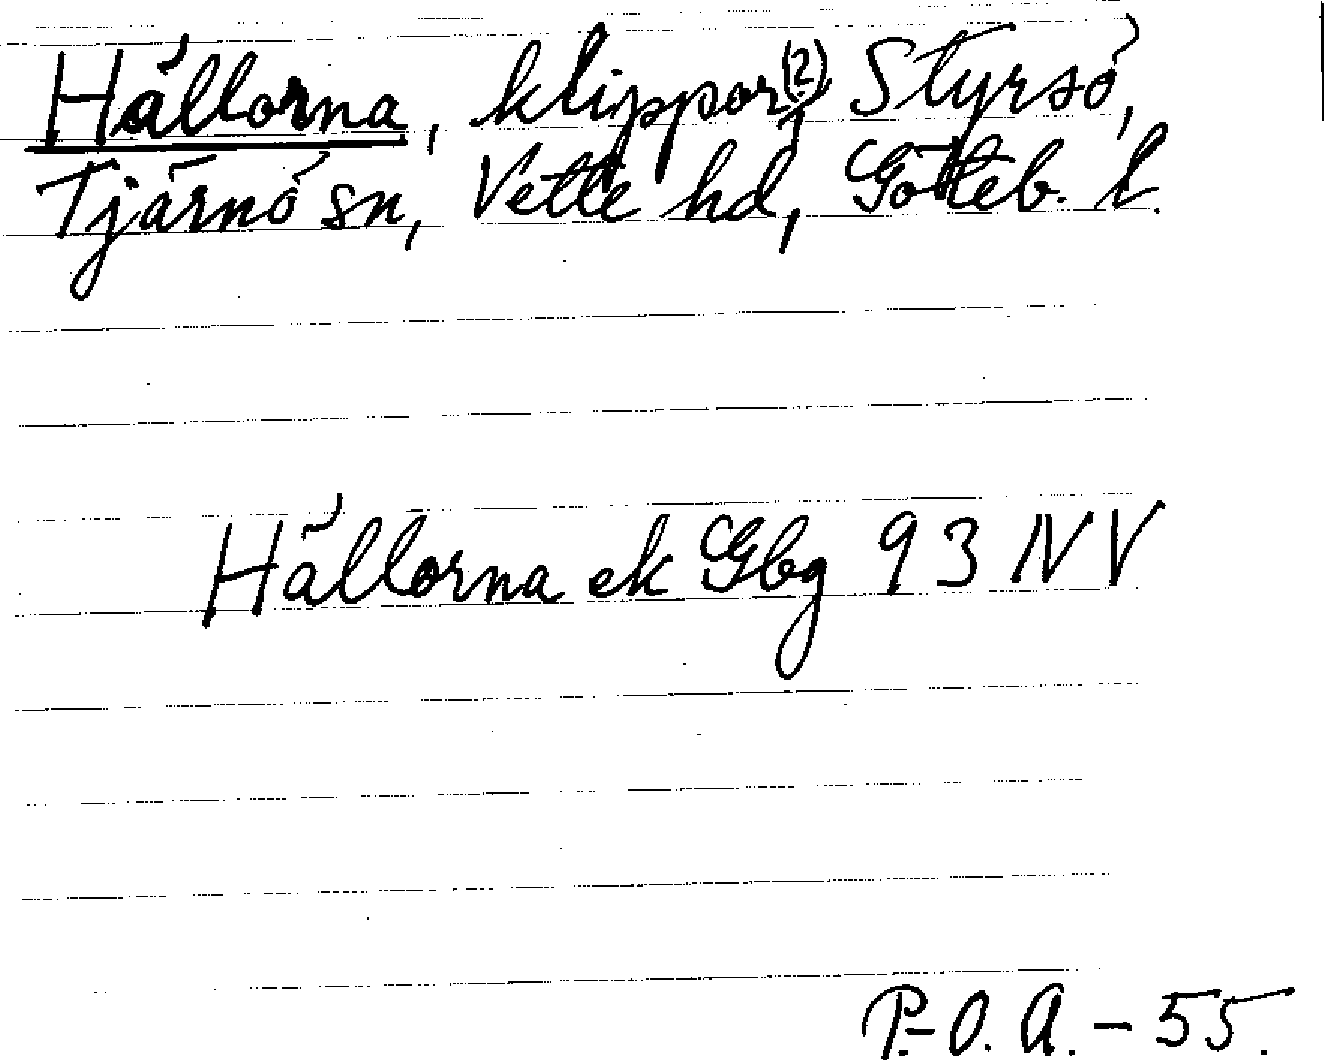 Hällorna, klippor (2), Styrsö,
Tjärnö sn, Vette hd, Götteb. l.
Hällorna ek Gbg 93 NV
P.-O. A. - 55.